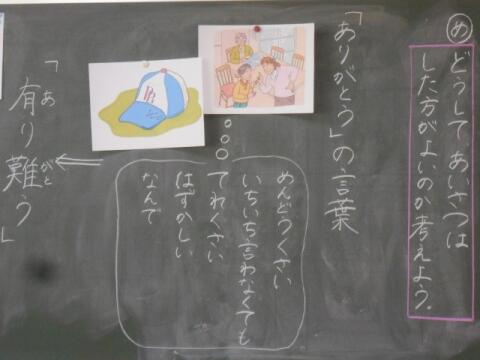 め
どうして、あいさつは
した方がよいのか考えよう。
「ありがとう」の言葉
めんどうくさい
いちいち言わなくても
てれくさい
はずかしい
なんで
「有り難う」
あ
がと